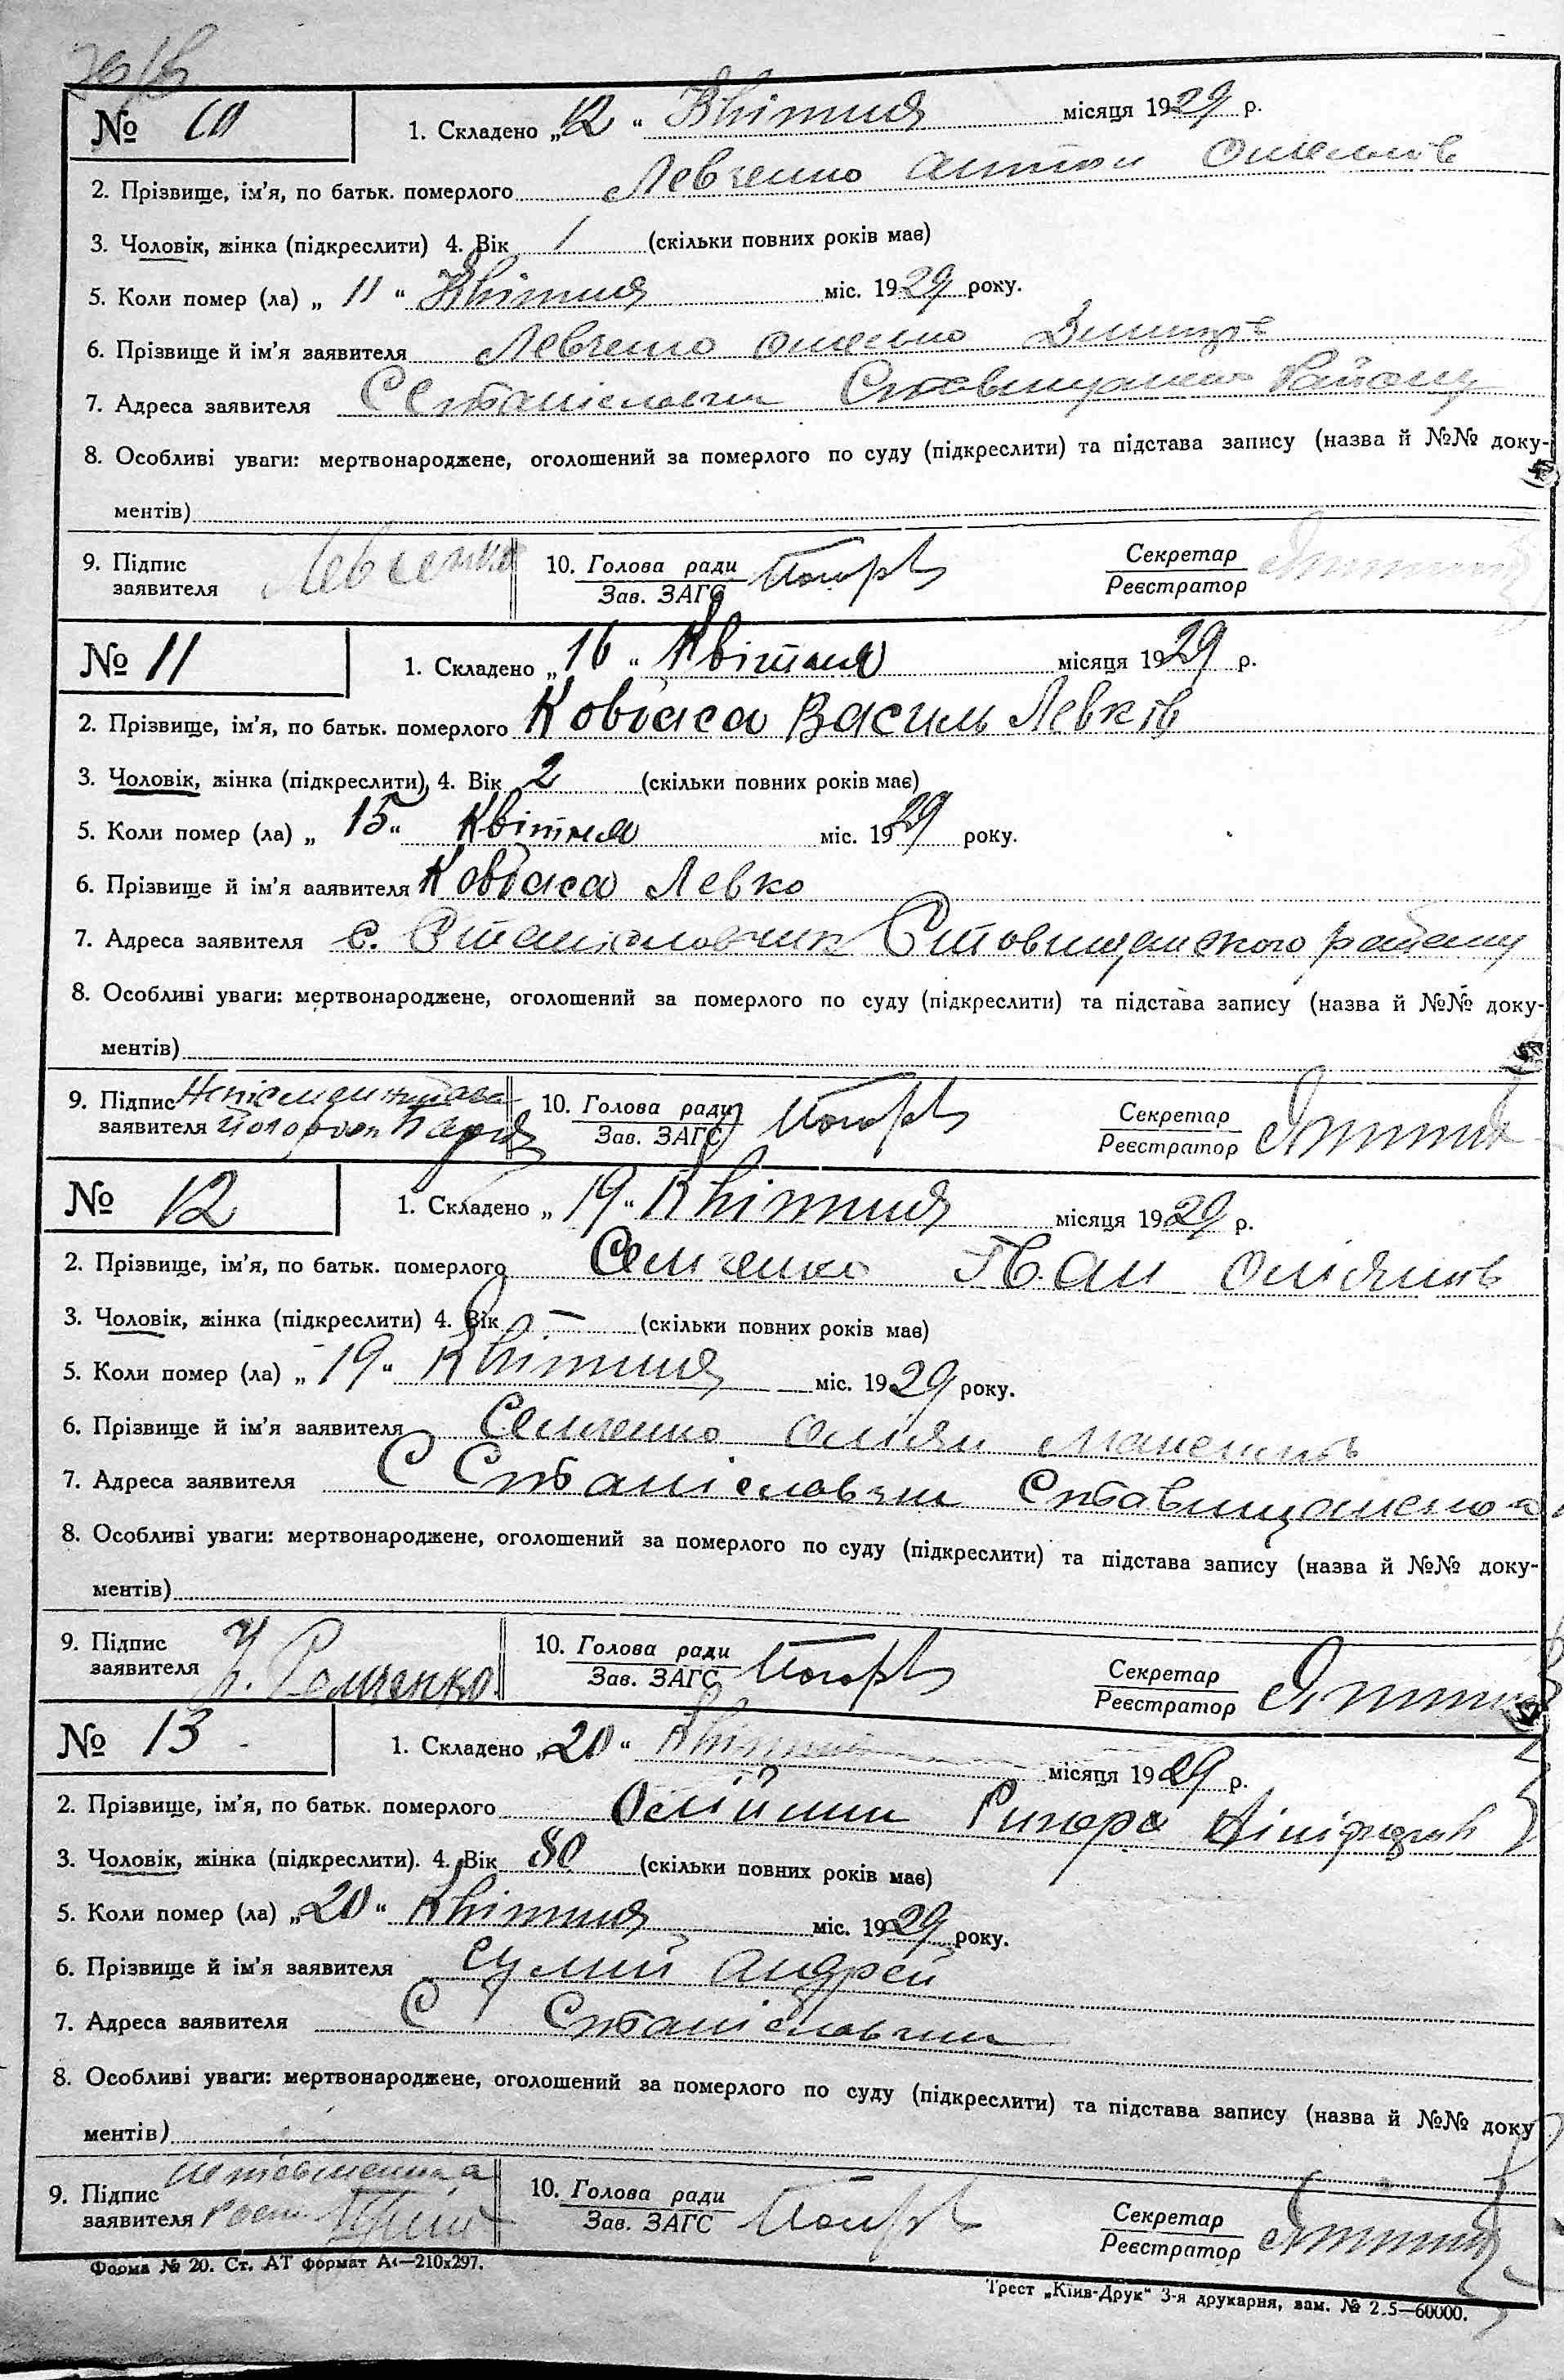 № 10 1. Складено „12“ Квітня місяця 1929 р.
2. Прізвище, ім'я, по батьк. померлого Левченко Антон Омельків
3. Чоловік, жінка (підкреслити) 4. Вік 1 (скільки повних років має)
5. Коли помер (ла) „11“ Квітня міс. 1929 року.
6. Прізвище й ім'я заявителя Левченко Омелько
7. Адреса заявителя С Станіславчик Ставищанського Району
8. Особливі уваги: мертвонароджене, оголошений за померлого по суду (підкреслити) та підстава запису (назва й №№ доку-
ментів)
9. Підпис заявителя Левченко 10. Голова ради Зав. ЗАГС Секретар Реєстратор
№ 11 1. Складено „16“ Квітня місяця 1929 р.
2. Прізвище, ім'я, по батьк. померлого Ковбаса Василь Левків
3. Чоловік, жінка (підкреслити) 4. Вік 2 (скільки повних років має)
5. Коли помер (ла) „15“ Квітня міс. 1929 року.
6. Прізвище й ім'я заявителя Ковбаса Левко
7. Адреса заявителя с. Станіславчик Ставищанского району
8. Особливі уваги: мертвонароджене, оголошений за померлого по суду (підкреслити) та підстава запису (назва й №№ доку-
ментів)
9. Підпис заявителя 10. Голова ради Зав. ЗАГС Секретар Реєстратор
№ 12 1. Складено „19“ Квітня місяця 1929 р.
2. Прізвище, ім'я, по батьк. померлого Семченко Іван
3. Чоловік, жінка (підкреслити) 4. Вік — (скільки повних років має)
5. Коли помер (ла) „19“ Квітня міс. 1929 року.
6. Прізвище й ім'я заявителя Семченко
7. Адреса заявителя С Станіславчик Ставищанського
8. Особливі уваги: мертвонароджене, оголошений за померлого по суду (підкреслити) та підстава запису (назва й №№ доку-
ментів)
9. Підпис заявителя 10. Голова ради Зав. ЗАГС Секретар Реєстратор
№ 13 1. Складено „20“ Квітня місяця 1929 р.
2. Прізвище, ім'я, по батьк. померлого
3. Чоловік, жінка (підкреслити). 4. Вік 80 (скільки повних років має)
5. Коли помер (ла) „20“ Квітня міс. 1929 року.
6. Прізвище й ім'я заявителя Андрей
7. Адреса заявителя С Станіславчик
8. Особливі уваги: мертвонароджене, оголошений за померлого по суду (підкреслити) та підстава запису (назва й №№ доку
ментів)
9. Підпис заявителя 10. Голова ради Зав. ЗАГС Секретар Реєстратор
Форма № 20. Ст. АТ формат А4—210х297.
Трест „Київ-Друк“ 3-я друкарня, зам. № 2.5—60000.